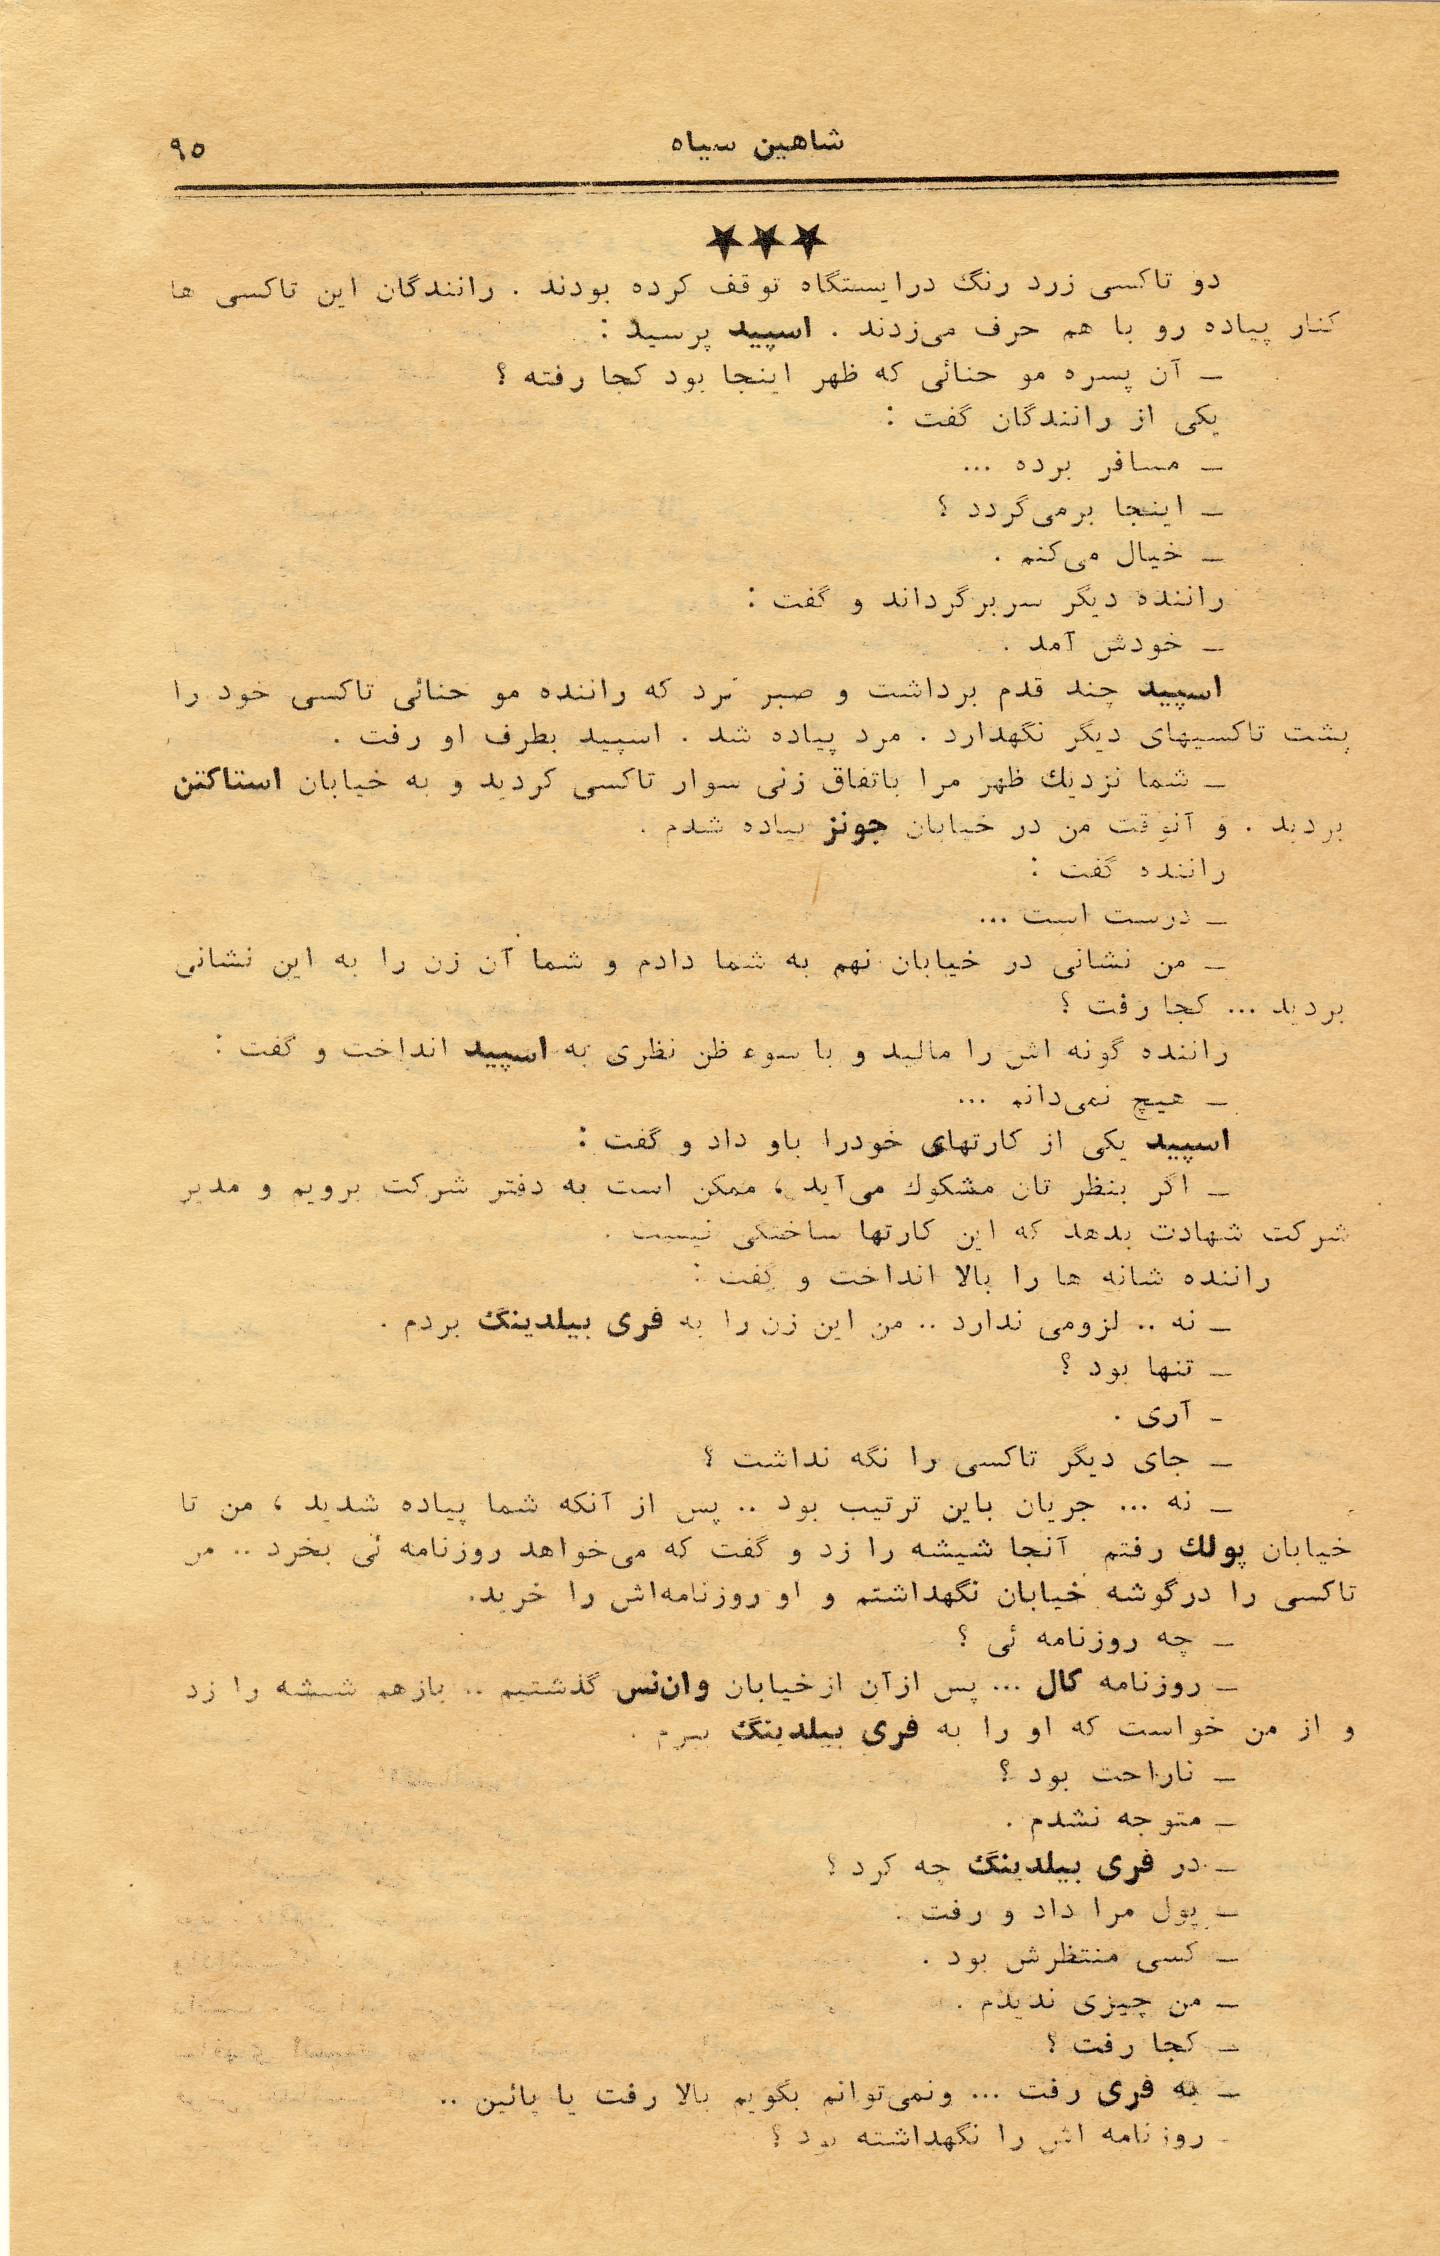 شاهین سیاه ۹۵
★★★
دو تاکسی زرد رنگ درایستگاه توقف کرده بودند . رانندگان این تاکسی ها
کنار پیاده رو با هم حرف می‌زدند . اسپید پرسید :
ـ آن پسره مو حنائی که ظهر اینجا بود کجا رفته ؟
یکی از رانندگان گفت :
ـ مسافر برده ...
ـ اینجا برمی‌گردد ؟
ـ خیال می‌کنم .
راننده دیگر سربرگرداند و گفت :
ـ خودش آمد .
اسپید چند قدم برداشت و صبر کرد که راننده مو حنائی تاکسی خود را
پشت تاکسیهای دیگر نگهدارد . مرد پیاده شد . اسپید بطرف او رفت .
ـ شما نزدیك ظهر مرا باتفاق زنی سوار تاکسی کردید و به خیابان استاکتن
بردید . و آنوقت من در خیابان جونز پیاده شدم .
راننده گفت :
ـ درست است ...
ـ من نشانی در خیابان نهم به شما دادم و شما آن زن را به این نشانی
بردید ... کجا رفت ؟
راننده گونه اش را مالید و با سوء ظن نظری به اسپید انداخت و گفت :
ـ هیچ نمی‌دانم ...
اسپید یکی از کارتهای خودرا باو داد و گفت :
ـ اگر بنظر تان مشکوك می‌آید ، ممکن است به دفتر شرکت برویم و مدیر
شرکت شهادت بدهد که این کارتها ساختگی نیست .
راننده شانه ها را بالا انداخت و گفت :
ـ نه .. لزومی ندارد .. من این زن را به فری بیلدینگ بردم .
ـ تنها بود ؟
ـ آری .
ـ جای دیگر تاکسی را نگه نداشت ؟
ـ نه ... جریان باین ترتیب بود .. پس از آنکه شما پیاده شدید ، من تا
خیابان پولك رفتم آنجا شیشه را زد و گفت که می‌خواهد روزنامه ئی بخرد .. من
تاکسی را درگوشه خیابان نگهداشتم و او روزنامه‌اش را خرید.
ـ چه روزنامه ئی ؟
ـ روزنامه کال ... پس ازآن ازخیابان وان‌نس گذشتیم .. بازهم شیشه را زد
و از من خواست که او را به فری بیلدینگ ببرم .
ـ ناراحت بود ؟
ـ متوجه نشدم .
ـ در فری بیلدینگ چه کرد ؟
ـ پول مرا داد و رفت .
ـ کسی منتظرش بود .
ـ من چیزی ندیدم .
ـ کجا رفت ؟
ـ به فری رفت ... ونمی‌توانم بگویم بالا رفت یا پائین ..
ـ روزنامه اش را نگهداشته بود ؟